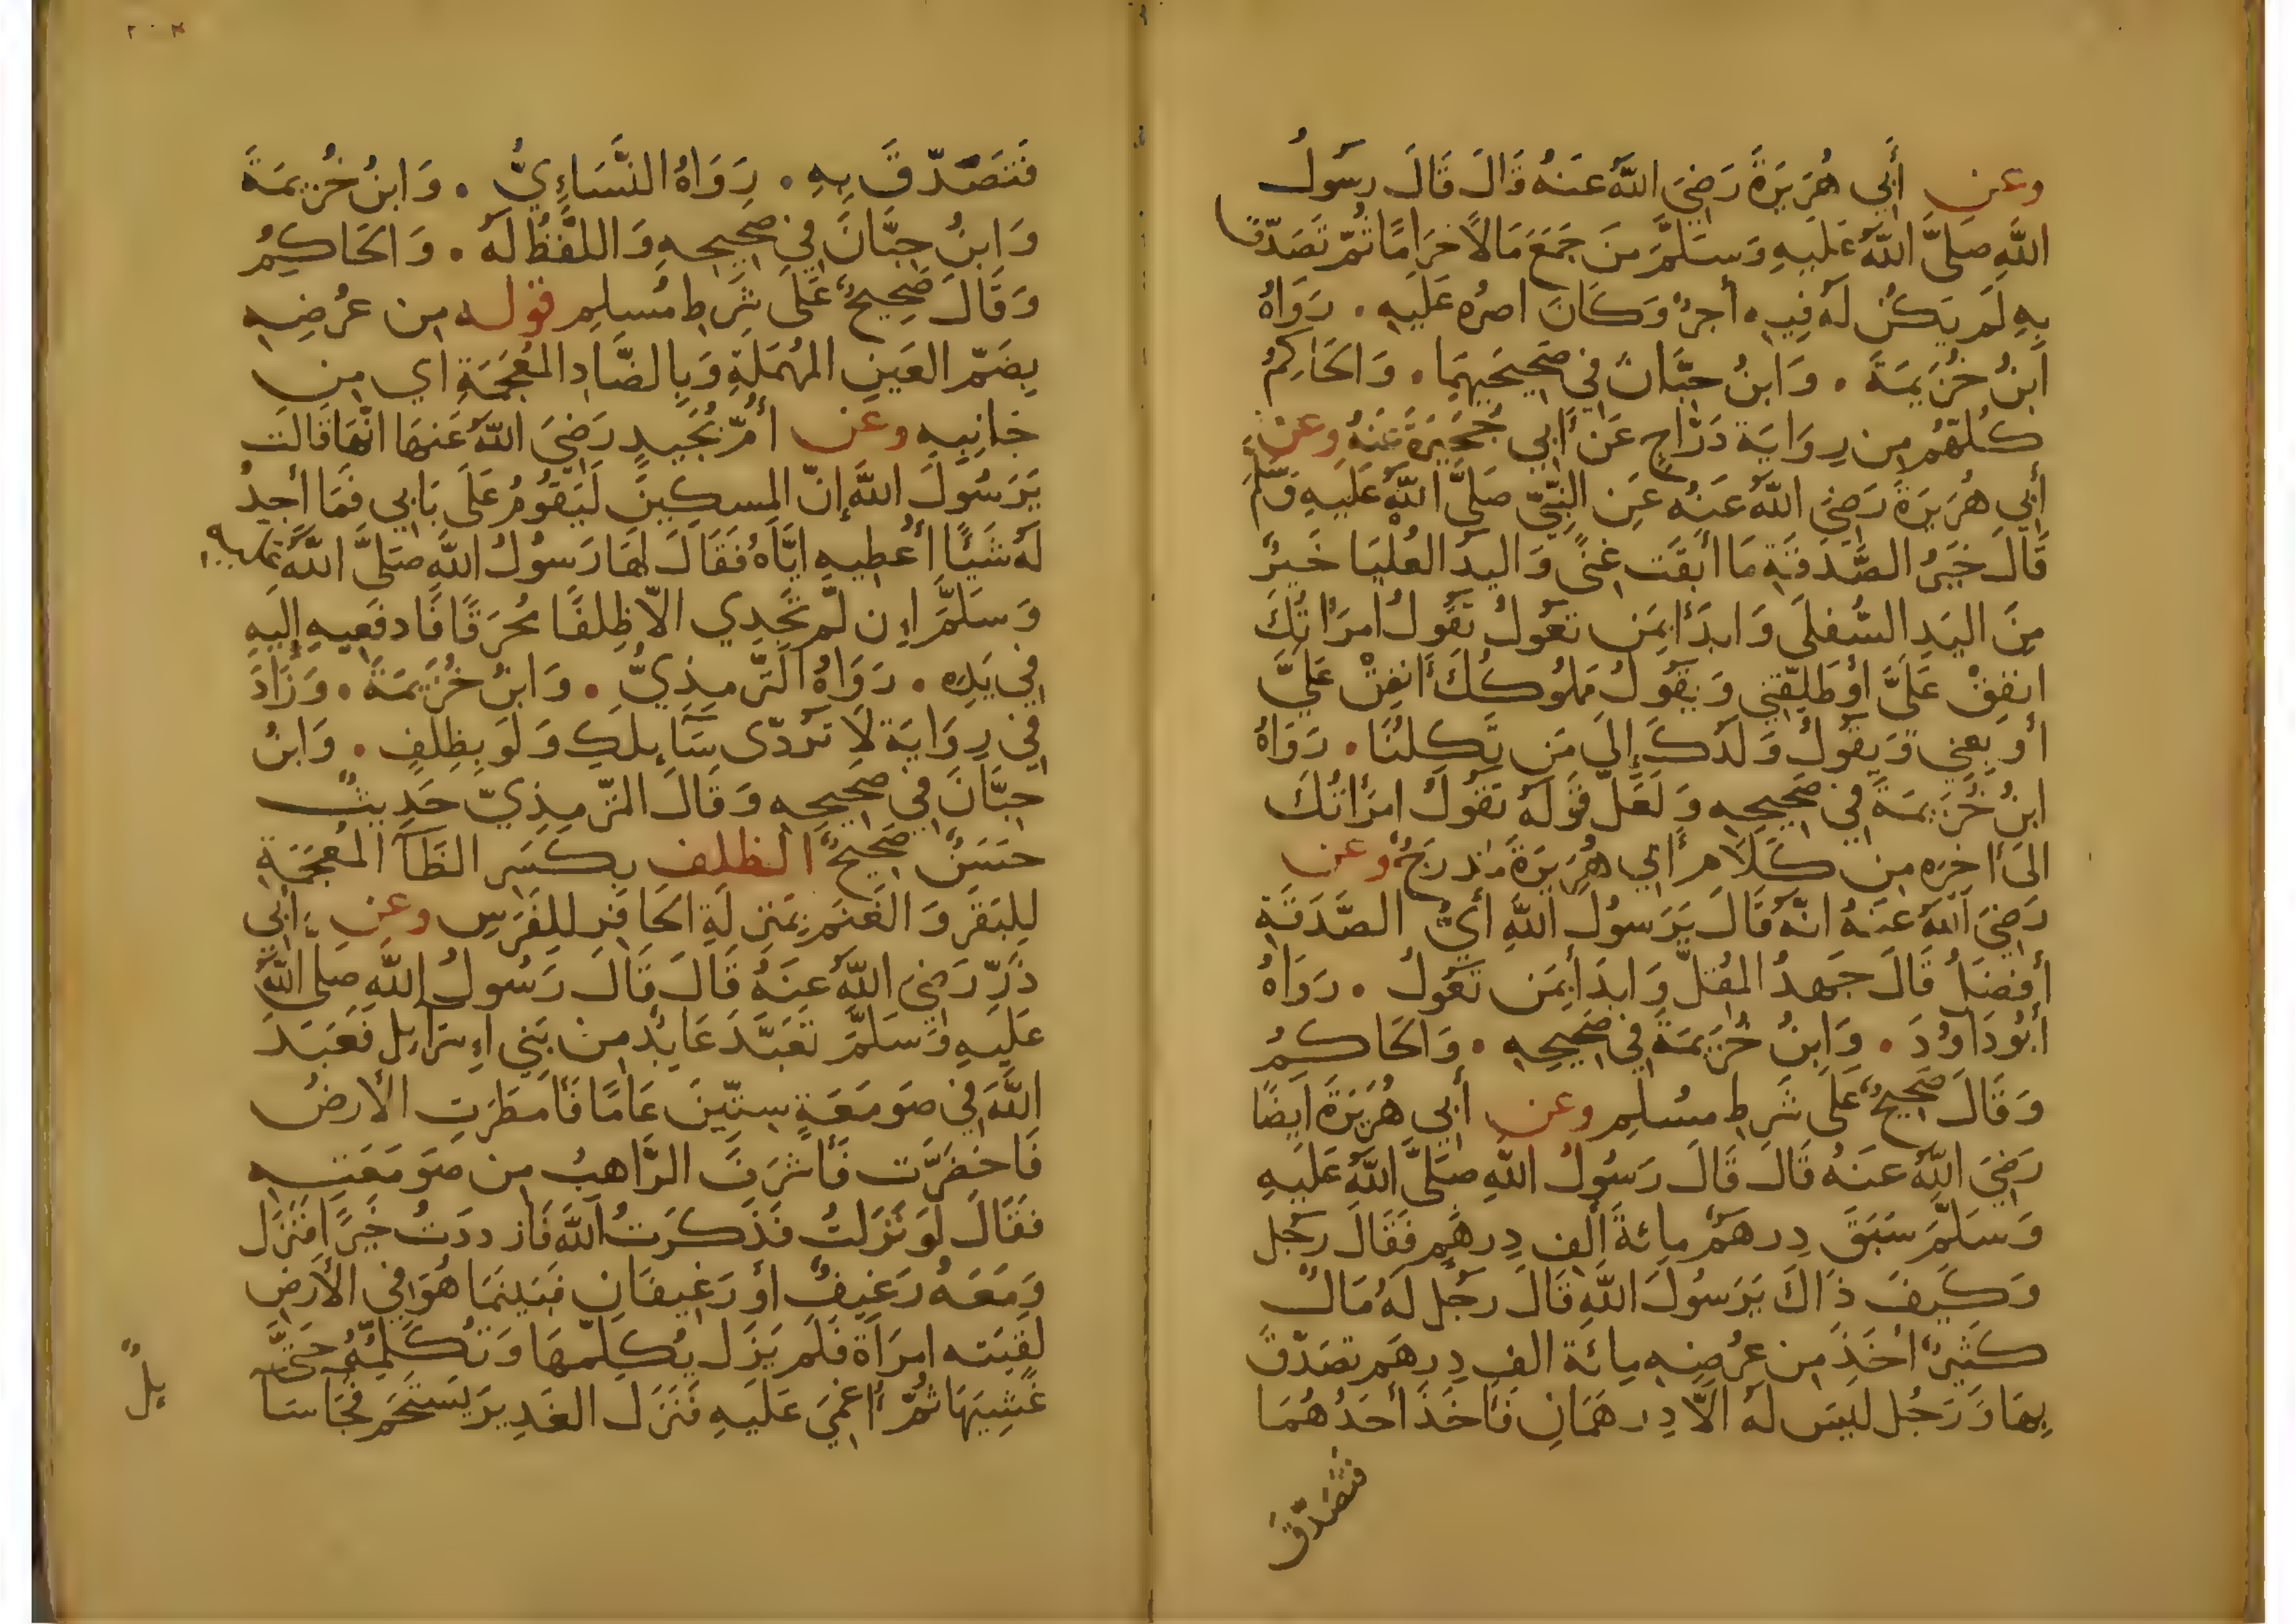 وعن أَبِي هُرَيرَةَ رَضِيَ اللَّهُ عَنهُ قَالَ قَالَ رسَولُ
اللَّهِ صَلَّى اللَّهُ عَلَيهِ وَسَلَّمَ مَن جَمَعَ مَالاً حَرَامًا ثُمّ تَصَدّقَ
بِهِ لَم يَكُن لَهُ فِيهِ أجرٌ وَكَانَ اصرُه عَلَيهِ . رَوَاهُ
ابنُ خُزَيمَةَ . وَابنُ حِبَّانَ فِي صَحِيحَيهِمَا . وَالحَاكِمُ
كُلّهُم مِن رِوَايَة دَرَّاجٍ عَن أَبِي حُجَيرَةَ عَنهُ وعن
أَبِي هُرَيرَةَ رَضِيَ اللَّهُ عَنهُ عَنِ النَّبِيّ صَلَّى اللَّهُ عَلَيهِ وَسَلَّمَ
قَالَ خَيرُ الصَّدَقَةِ مَا أَبقَت غِنًى وَاليَدُ العُليَا خَيرٌ
مِنَ اليَدِ السُّفلَى وَابدَأ بِمَن تَعُولُ تَقُولُ امرَأتُكَ
انفِقْ عَلَيَّ أَو طَلِّقنِي وَيَقُولُ مَملُوكُكَ أَنفِقْ عَلَيَّ
أو بِعنِي وَيَقُولُ وَلَدُكَ إِلَى مَن تَكِلُنَا . رَوَاهُ
ابنُ خُزَيمَةَ فِي صَحِيحِهِ وَلَعَلَّ قَولَهُ تَقُولُ امرَأتُكَ
الَى أخِرِه مِن كَلَامِ أبِي هُرَيرَةَ مُندرَجٌ وعن
رَضِيَ اللَّهُ عَنهُ انّهُ قَالَ يَرَسُولَ اللَّهِ أَيُّ الصَّدَقَةِ
أفضَلُ قَالَ جَهدُ المُقِلّ وَابدَأ بِمَن تَعُولُ . رَوَاهُ
أَبُو دَاوُدَ . وَابنُ خُزَيمَةَ فِي صَحِيحِهِ . وَالحَاكِمُ
وَقَالَ صَحِيحٌ عَلَى شَرطِ مُسلِمٍ وعن أَبِي هُرَيرَةَ ايضًا
رَضِيَ اللَّهُ عَنهُ قَالَ قَالَ رَسُولُ اللَّهِ صَلَّى اللَّهُ عَلَيهِ
وَسَلَّمَ سَبَقَ دِرهَمٌ مِائةَ أَلفِ دِرهَمٍ فَقَالَ رَجُل
وَكَيفَ ذَاكَ يَرَسُولَ اللَّهِ قَالَ رَجُل لَهُ مَالٌ
كَثِيرٌ اخَذَ مِن عُرضِهِ مِائة الفِ دِرهَم تصَدّقَ
بِهَا وَرَجُل لَيسَ لَهُ الّا دِرهَمَانِ فَأخَذَ أحَدُهُمَا
فتَصَدّقَ
٢٠٣
فَتَصَدّقَ بِهِ . رَوَاهُ النَّسَاءِيُّ . وَابنُ خُزَيمَةَ
وَابنُ حِبَّانَ فِي صَحِيحِهِ وَاللّفظُ لَهُ . وَالحَاكِمُ
وَقَالَ صَحِيحٌ عَلَى شَرطِ مُسلِمٍ قوله من عُرضِهِ
بِضَمّ العَينِ المُهمَلَةِ وَبِالضَّادِ المُعجَمَةِ اي مِن
جَانِبِهِ وعن أُمّ بُجَيدٍ رَضِيَ اللَّهُ عَنهَا انّهَا قَالَت
يَرَسُولَ اللَّهِ إِنّ المِسكِينَ لَيَقُومُ عَلَى بَابِي فَمَا أَجِدُ
لَهُ شَيًا أُعطِيهِ ايَّاهُ فَقَالَ لَهَا رَسُولُ اللَّهِ صَلَّى اللَّهُ عليه
وَسَلَّمَ اِن لَم تَجِدِي الاّ ظِلفًا مُحرَقًا فَادفَعِيهِ إِلَيهِ
فِي يَدِه . رَوَاهُ التِّرمِذِيُّ . وَابنُ خُزَيمَةَ . وَزَادَ
فِي رِوَايَة لَا تَرُدّى سَآيِلَكِ وَلَو بِظِلفٍ . وَابنُ
حِبَّانَ فِي صَحِيحِهِ وَقَالَ التّرمِذِيّ حَدِيثٌ
حَسَنٌ صَحِيحٌ الظلف بِكَسرِ الظَّآ المُعجَمَةِ
لِلبَقَرِ وَالغَنَمِ بِمَنزِلَةِ الحَافِرِ لِلفَرَسِ وعن أَبِي
ذَرّ رَضِيَ اللَّهُ عَنهُ قَالَ قَالَ رَسُولُ اللَّهِ صَلى اللَّهُ
عَلَيهِ وَسَلَّمَ تَعَبَّدَ عَابِدٌ مِن بَنِي اِسرَايِل فَعَبَدَ
اللَّهَ فِي صَومَعَةٍ سِتِّينَ عَامًا فَأَمطَرَتِ الأَرضُ
فَاخضَرَّت فَأَشرَفَ الرَّاهِبُ مِن صَومَعَتِهِ
فَقَالَ لَو نَزَلتُ فَذَكَرتُ اللَّهَ فَازدَدتُ خَيرًا فَنَزَل
وَمَعَهُ رَغِيفٌ أو رَغِيفَانِ فَبَينَمَا هُوَ فِي الأَرضِ
لَقِيَته امرَأَة فَلَم يَزَل يُكَلِّمهَا وَتُكَلِّمُهُ حَتَّى
غَشِيَهَا ثُمَّ أُغمِيَ عَلَيهِ فَنَزَلَ الغَدِيرَ يَستَحَم فَجَا سَآ
يلٌ